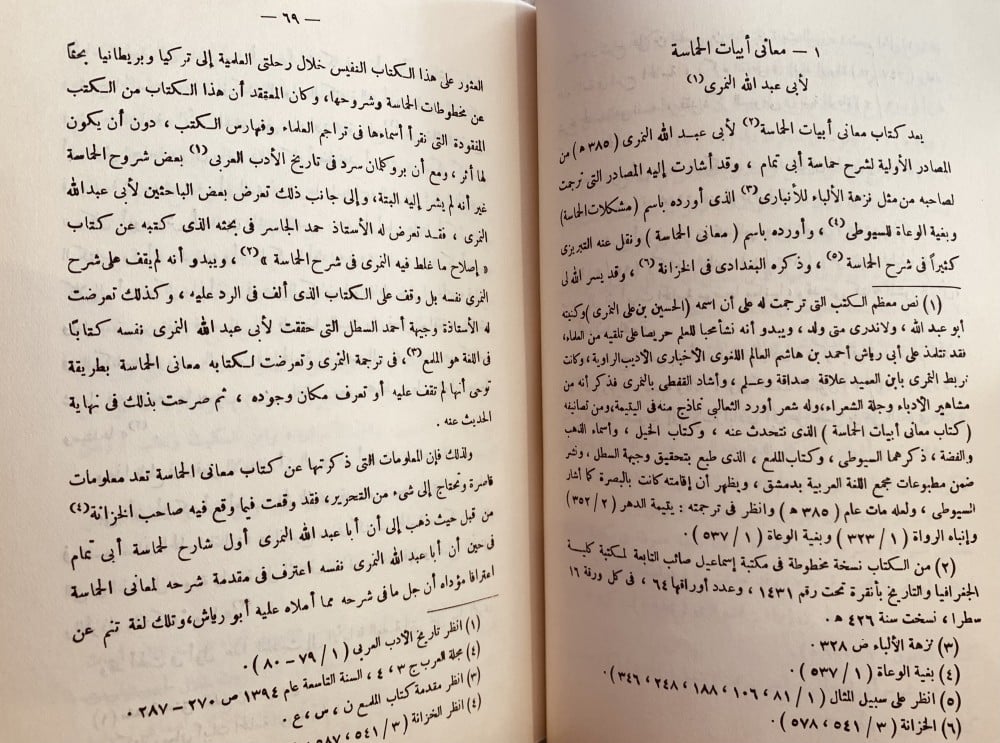 ١ — معانى أبيات الحماسة
لأبى عبد الله النمرى (١)
يعد كتاب معانى أبيات الحماسة (٢) لأبى عبد الله النمرى ( ٣٨٥ هـ ) من
المصادر الأولية لشرح حماسة أبى تمام ، وقد أشارت إليه المصادر التى ترجمت
لصاحبه من مثل نزهة الألباء للأنبارى (٣) الذى أورده باسم ( مشكلات الحماسة )
وبغية الوعاة للسيوطى (٤) ، وأورده باسم ( معانى الحماسة ) ونقل عنه التبريزى
كثيراً فى شرح الحماسة (٥) ، وذكره البغدادى فى الخزانة (٦) ، وقد يسر الله لى
(١) نص معظم الكتب التى ترجمت له على أن اسمه (الحسين بن على النمرى) وكنيته
أبو عبد الله ، ولاندرى متى ولد ، ويبدو أنه نشأ محبا للعلم حريصا على تلقيه من العلماء،
فقد تتلمذ على أبى رياش أحمد بن هاشم العالم اللغوى الأخبارى الأديب الراوية، وكانت
تربط النمرى بابن العميد علاقة صداقة وعلم ، وأشاد القفطى بالنمرى فذكر أنه من
مشاهير الأدباء وجلة الشعراء، وله شعر أورد الثعالبى نماذج منه فى اليتيمة، ومن تصانيفه
(كتاب معانى أبيات الحماسة ) الذى نتحدث عنه ، وكتاب الخيل ، وأسماء الذهب
والفضة ، ذكرهما السيوطى ، وكتاب الملمع ، الذى طبع بتحقيق وجيهة السطل ، ونشر
ضمن مطبوعات مجمع اللغة العربية بدمشق ، ويظهر أن إقامته كانت بالبصرة كما أشار
السيوطى ، ولعله مات عام ( ٣٨٥ هـ ) وانظر فى ترجمته : يتيمة الدهر ( ٢ / ٣٥٢ )
وإنباه الرواة ( ١ / ٣٢٣ ) وبغية الوعاة ( ١ / ٥٣٧ ) ٠
(٢) من الكتاب نسخة مخطوطة فى مكتبة إسماعيل صائب التابعة لمكتبة كلية
الجغرافيا والتاريخ بأنقرة تحت رقم ١٤٣١ ، وعدد أوراقها ٦٤ ، فى كل ورقة ١٦
سطرا ، نسخت سنة ٤٢٦ هـ ٠
(٣) نزهة الألباء ص ٣٢٨ ٠
(٤) بغية الوعاة ( ١ / ٥٣٧ ) ٠
(٥) انظر على سبيل المثال ( ١ / ٨١ ، ١٠٦ ، ١٨٨ ، ٢٤٨ ، ٣٤٦ ) ٠
(٦) الخزانة ( ٣ / ٥٤١ ، ٥٧٨ ) ٠
— ٦٩ —
العثور على هذا الكتاب النفيس خلال رحلتى العلمية إلى تركيا وبريطانيا بحثًا
عن مخطوطات الحماسة وشروحها، وكان المعتقد أن هذا الكتاب من الكتب
المفقودة التى نقرأ أسماءها فى تراجم العلماء وفهارس الكتب ، دون أن يكون
لها أثر ، ومع أن بروكلمان سرد فى تاريخ الأدب العربى (١) بعض شروح الحماسة
غير أنه لم يشر إليه البتة، وإلى جانب ذلك تعرض بعض الباحثين لأبى عبد الله
النمرى ، فقد تعرض له الأستاذ حمد الجاسر فى بحثه الذى كتبه عن كتاب
« إصلاح ما غلط فيه النمرى فى شرح الحماسة » (٢) ، ويبدو أنه لم يقف على شرح
النمرى نفسه بل وقف على الكتاب الذى ألف فى الرد عليه ، وكذلك تعرضت
له الأستاذة وجيهة أحمد السطل التى حققت لأبى عبد الله النمرى نفسه كتابًا
فى اللغة هو الملمع (٣) ، فى ترجمة النمرى وتعرضت لكتابه معانى الحماسة بطريقة
توحى أنها لم تقف عليه أو تعرف مكان وجوده ، ثم صرحت بذلك فى نهاية
الحديث عنه .
ولذلك فإن المعلومات التى ذكرتها عن كتاب معانى الحماسة تعد معلومات
قاصرة وتحتاج إلى شىء من التحرير، فقد وقعت فيما وقع فيه صاحب الخزانة (٤)
من قبل حيث ذهب إلى أن أبا عبد الله النمرى أول شارح لحماسة أبى تمام
فى حين أن أبا عبد الله النمرى نفسه اعترف فى مقدمة شرحه لمعانى الحماسة
اعترافا مؤداه أن جل ما فى شرحه مما أملاه عليه أبو رياش، وتلك لغة تنم عن
(١) انظر تاريخ الأدب العربى ( ١ / ٧٩ - ٨٠ ) ٠
(٤) مجلة العرب ج ٣ ، ٤ ، السنة التاسعة عام ١٣٩٤ ص ٢٧٠ - ٢٨٧ ٠
(٣) انظر مقدمة كتاب الملمع ن ، س ، ع ٠
(٤) انظر الخزانة ( ٣ / ٥٤١ ،